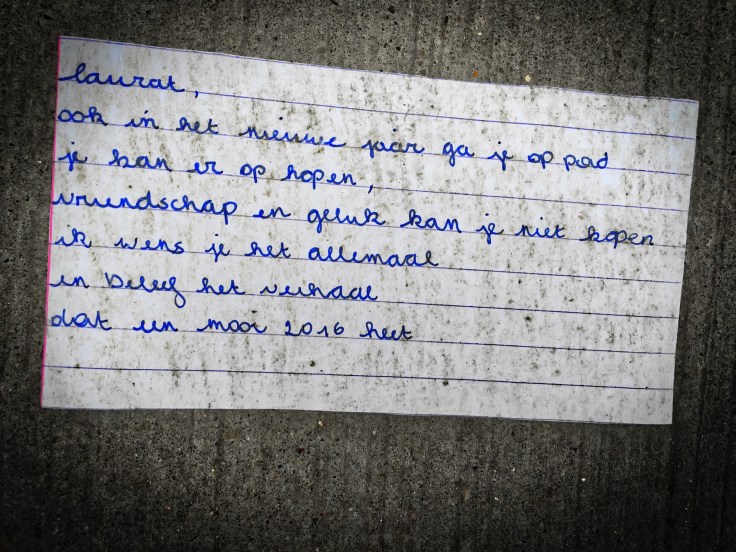 laurat,
ook in het nieuwe jaar ga je op pad
je kan er op hopen,
vriendschap en geluk kan je niet kopen
ik wens je het allemaal
en beleef het verhaal
dat een mooi 2016 heet